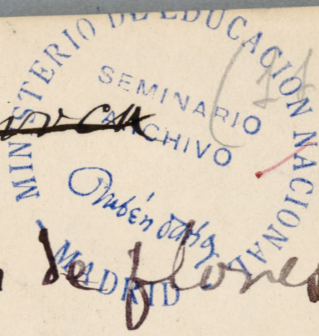 MINISTERIO DE EDUCACION NACIONAL
SEMINARIO
ARCHIVO
Rubén Darío
MADRID
de flores